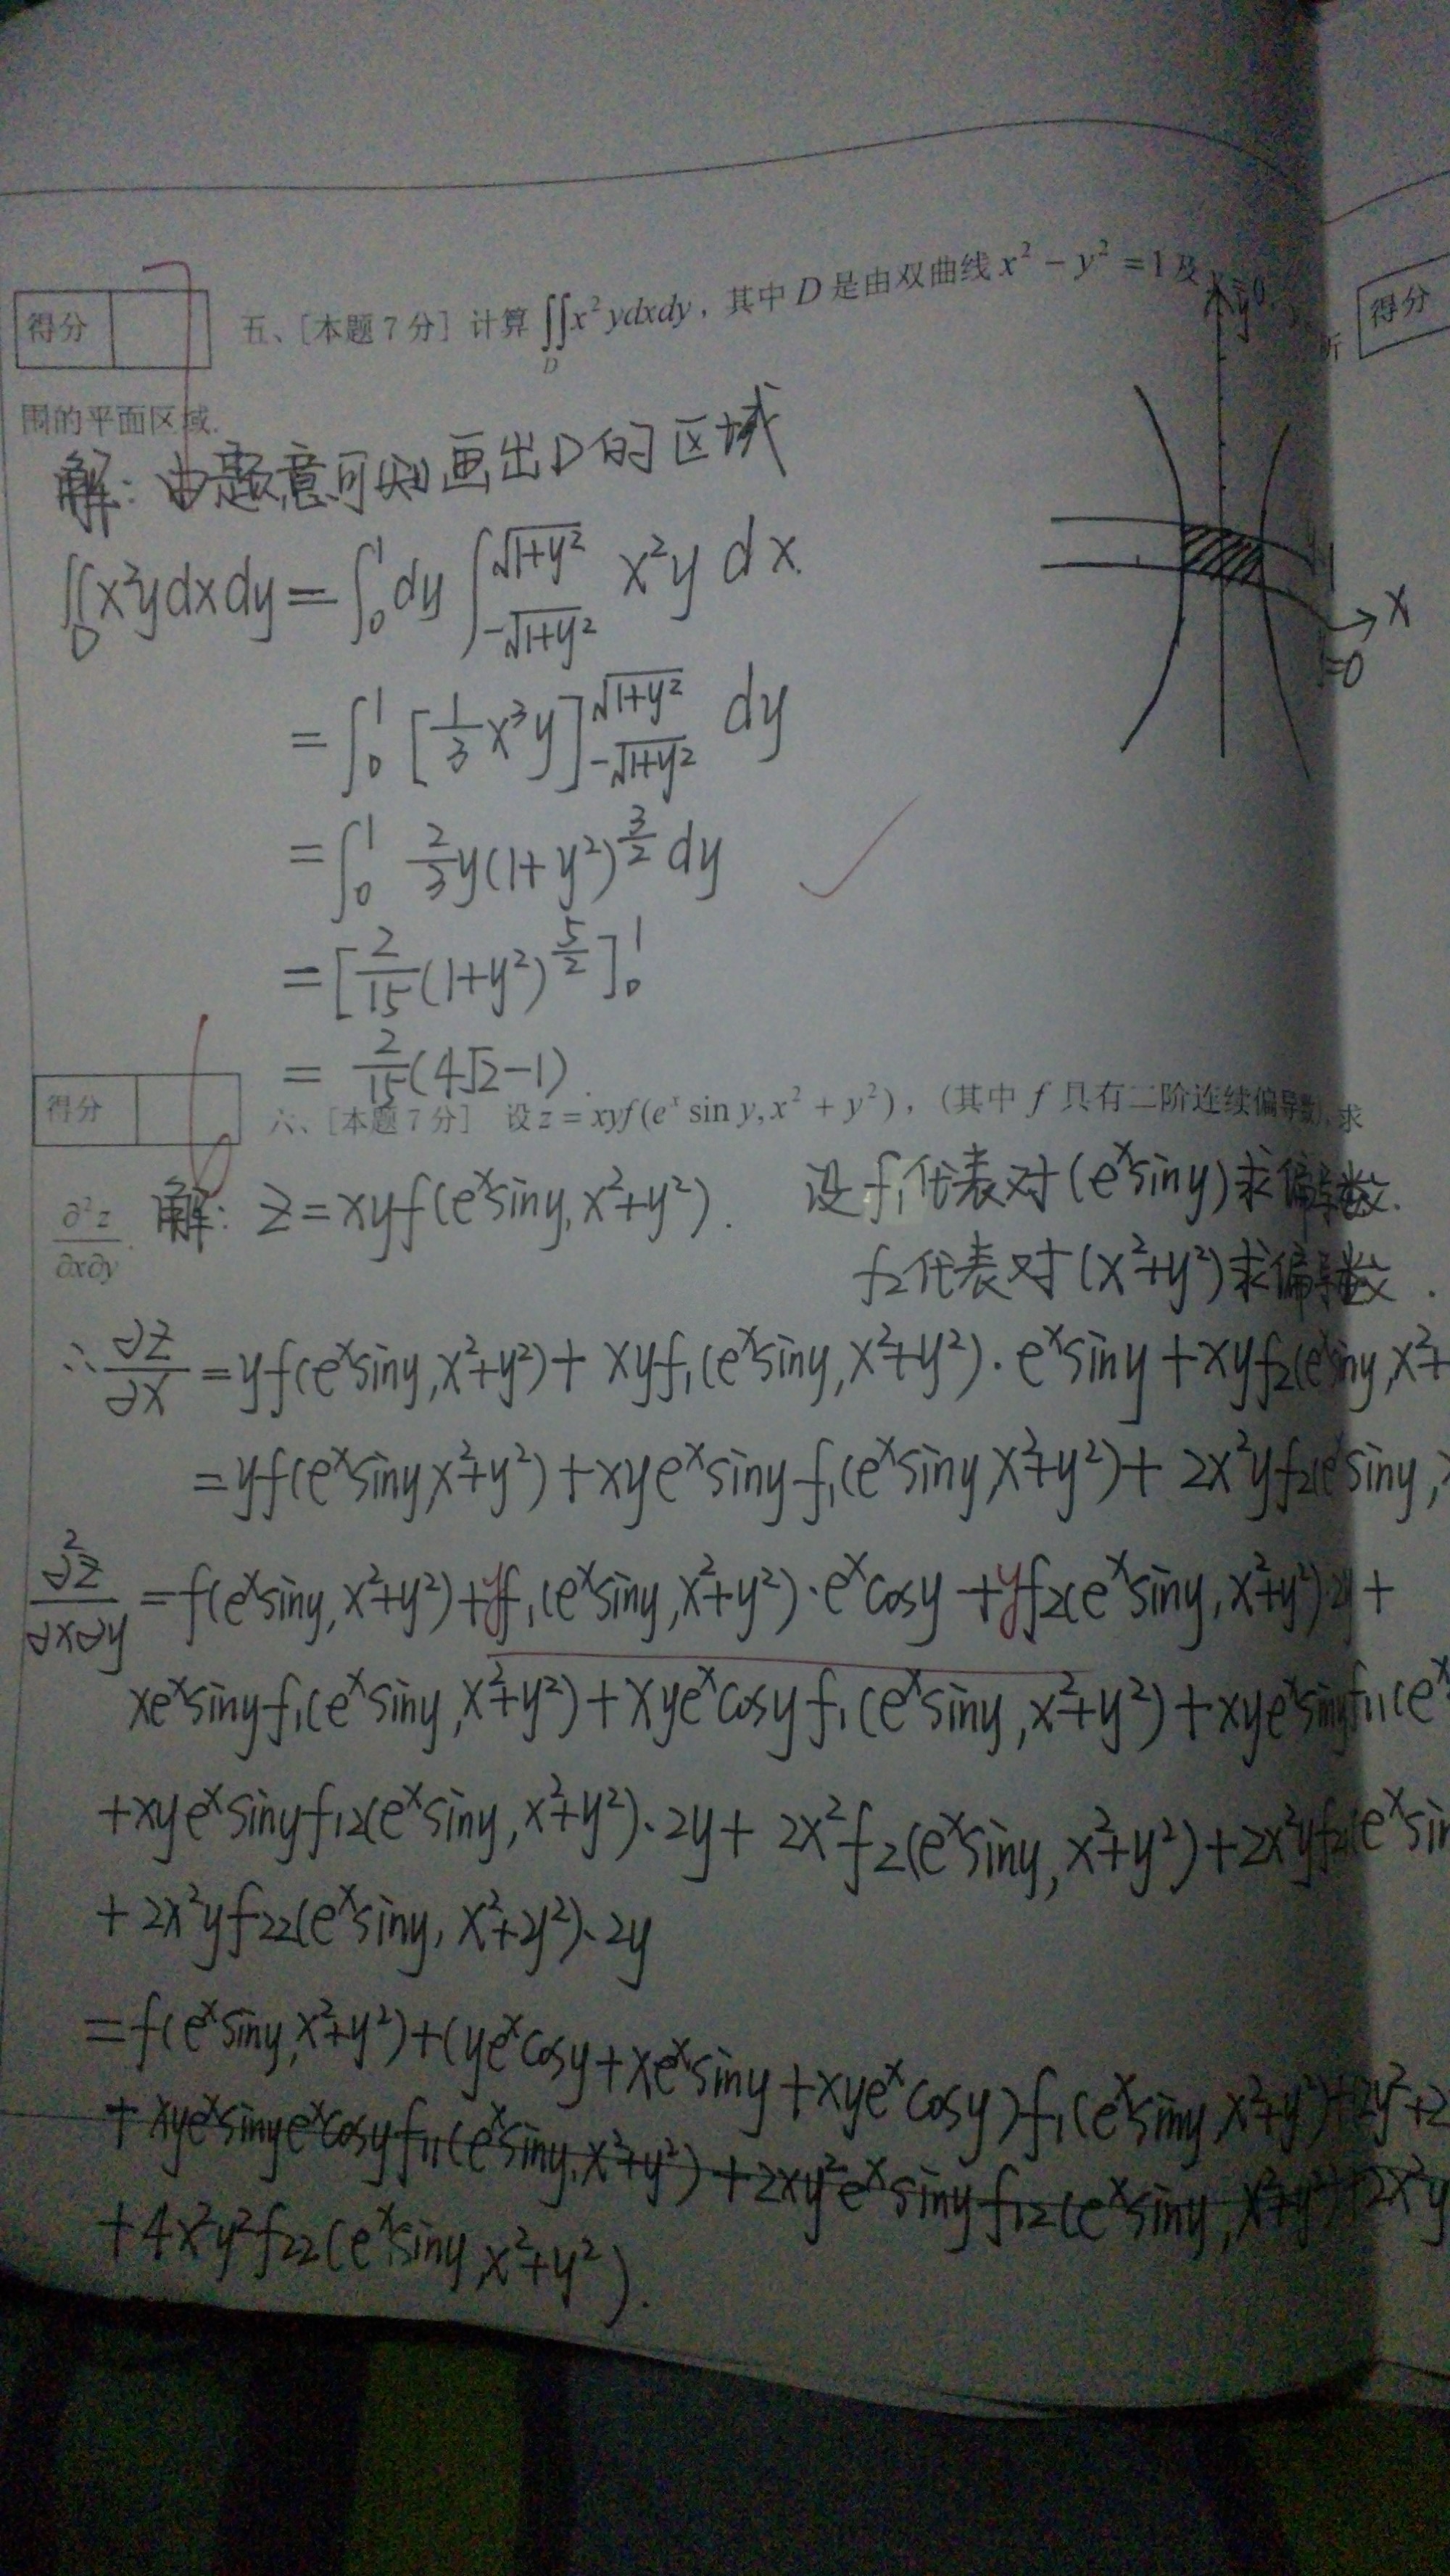 得分
五、[本题7分] 计算 ∬_D x²ydxdy，其中 D 是由双曲线 x² − y² = 1 及
所
得分
围的平面区域.
解：由题意可知画出D的区域
∬_D x²y dx dy = ∫₀¹ dy ∫_{-√(1+y²)}^{√(1+y²)} x²y dx.
= ∫₀¹ [1/3 x³y]_{-√(1+y²)}^{√(1+y²)} dy
x
=0
= ∫₀¹ 2/3 y(1+y²)^{3/2} dy
= [2/15 (1+y²)^{5/2}]₀¹
= 2/15 (4√2−1).
得分
六、[本题7分] 设 z = xyf(e^x sin y, x² + y²)，(其中 f 具有二阶连续偏导数), 求
∂²z/∂x∂y.
解: z = xyf(e^x siny, x²+y²).
设 f₁代表对(e^x siny)求偏导数.
f₂代表对(x²+y²)求偏导数.
∴ ∂z/∂x = yf(e^x siny, x²+y²) + xyf₁(e^x siny, x²+y²)·e^x siny + xyf₂(e^x siny, x²+
= yf(e^x siny, x²+y²) + xye^x siny f₁(e^x siny, x²+y²) + 2x²yf₂(e^x siny,
∂²z/∂x∂y = f(e^x siny, x²+y²) + yf₁(e^x siny, x²+y²)·e^x cosy + yf₂(e^x siny, x²+y²)·2y +
xe^x siny f₁(e^x siny, x²+y²) + xye^x cosy f₁(e^x siny, x²+y²) + xye^x siny f₁₁(e^x
+ xye^x siny f₁₂(e^x siny, x²+y²)·2y + 2x²f₂(e^x siny, x²+y²) + 2x²yf₂₁(e^x sin
+ 2x²yf₂₂(e^x siny, x²+y²)·2y
= f(e^x siny, x²+y²) + (ye^x cosy + xe^x siny + xye^x cosy)f₁(e^x siny, x²+y²) + (2y²+2
+ xye^x siny e^x cosy f₁₁(e^x siny, x²+y²) + 2xy²e^x siny f₁₂(e^x siny, x²+y²) + 2x²y
+ 4x²y²f₂₂(e^x siny, x²+y²).